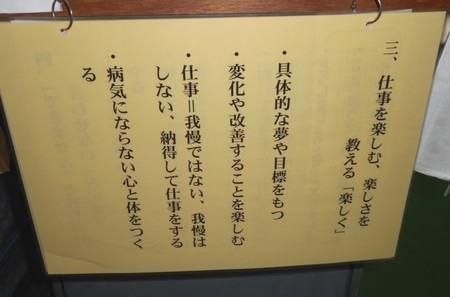 三、仕事を楽しむ、楽しさを
教える「楽しく」
・具体的な夢や目標をもつ
・変化や改善することを楽しむ
・仕事＝我慢ではない、我慢は
しない、納得して仕事をする
・病気にならない心と体をつく
る